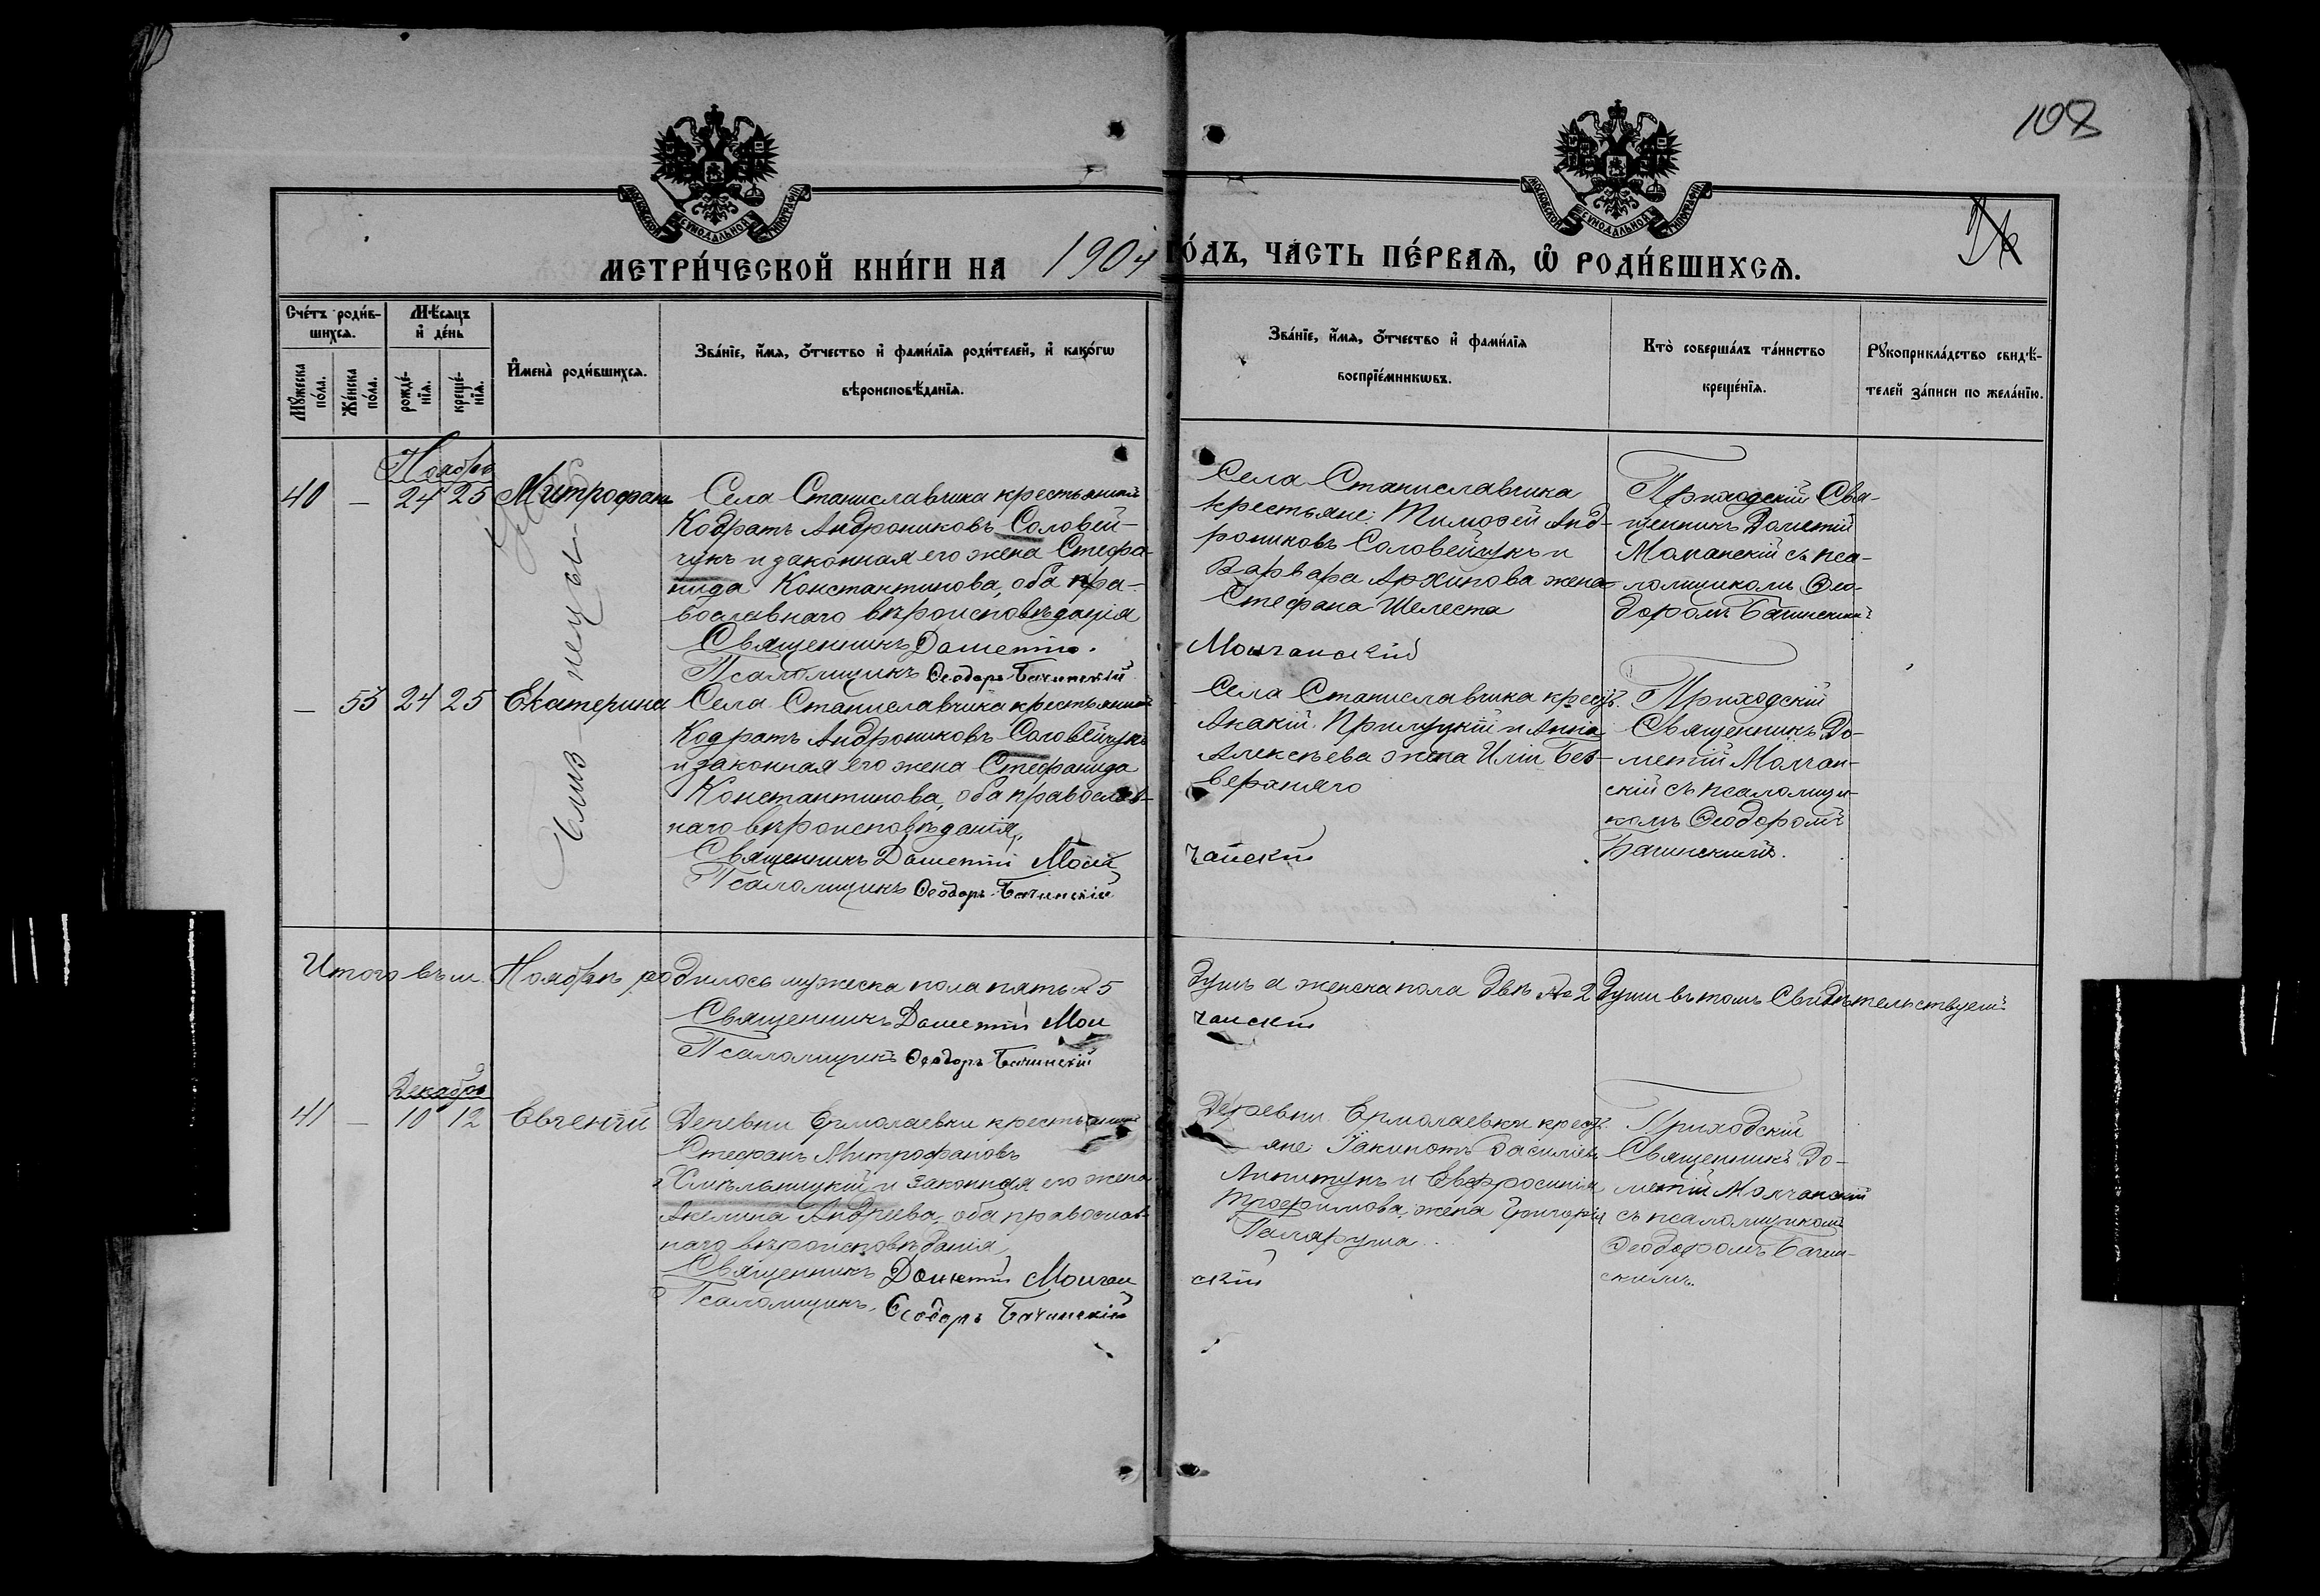 108
МОСКОВСКОЙ СѴНОДАЛЬНОЙ ТИПОГРАФІИ
МОСКОВСКОЙ СѴНОДАЛЬНОЙ ТИПОГРАФІИ
МЕТРИ́ЧЕСКОЙ КНИ́ГИ НА 1904 ГО́ДЪ, ЧА́СТЬ ПЕ́РВАѦ, Ѡ҆ РОДИ́ВШИХСѦ.
Сче́тъ роди́в-
шихсѧ.
Мꙋ́жеска по́ла.
Же́нска по́ла.
Мѣ́сѧцъ
и҆ де́нь
рожде́-
нїѧ.
креще́-
нїѧ.
И҆мена̀ роди́вшихсѧ.
Зва́нїе, и҆́мѧ, ѻ҆́тчество и҆ фами́лїѧ роди́телей, и҆ како́гѡ
вѣроисповѣ́данїѧ.
Зва́нїе, и҆́мѧ, ѻ҆́тчество и҆ фами́лїѧ
воспрїе́мникѡвъ.
Кто̀ соверша́лъ та́инство
креще́нїѧ.
Рꙋкоприкла́дство свидѣ́-
телей за́писи по жела́нїю.
Ноябрь
40 — 24 25 Митрофанъ
Близ-нецы
Села Станиславчика крестьянинъ
Кодратъ Андрониковъ Соловей-
чукъ и законная его жена Стефа-
нида Константинова, оба пра-
вославнаго вѣроисповѣданія
Священникъ Дометій Молчанскій
Псаломщикъ Ѳеодоръ Бачинскій
Села Станиславчика
крестьяне: Тимоѳей Анд-
рониковъ Соловейчукъ и
Варвара Архипова жена
Стефана Шелеста
Приходскій Свя-
щенникъ Дометій
Молчанскій съ пса-
ломщикомъ Ѳео-
доромъ Бачинскимъ
— 53 24 25 Екатерина
Села Станиславчика крестьянинъ
Кодратъ Андрониковъ Соловейчукъ
и законная его жена Стефанида
Константинова, оба православ-
наго вѣроисповѣданія,
Священникъ Дометій Молчанскій
Псаломщикъ Ѳеодоръ Бачинскій
Села Станиславчика крест.
Акакій Прилуцкій и Анна
Алексѣева жена Иліи Без-
верхняго
Приходскій
Священникъ До-
метій Молчан-
скій съ псаломщи-
комъ Ѳеодоромъ
Бачинскимъ.
Итого въ м. Ноябрѣ родилось мужеска пола пять 5 душъ а женска пола двѣ 2 души въ томъ Свидѣтельствуемъ
Священникъ Дометій Молчанскій
Псаломщикъ Ѳеодоръ Бачинскій
Декабрь
41 — 10 12 Евгеній
Деревни Ермолаевки крестьянинъ
Стефанъ Митрофановъ
Хмѣльницкій и законная его жена
Акелина Андреева, оба православ-
наго вѣроисповѣданія
Священникъ Дометій Молчанскій
Псаломщикъ Ѳеодоръ Бачинскій
Деревни Ермолаевки кресть-
яне Іакинѳъ Василіевъ
и Евфросинія
Трофимова, жена Григорія
Приходскій
Священникъ До-
метій Молчанскій
съ псаломщикомъ
Ѳеодоромъ Бачин-
скимъ.